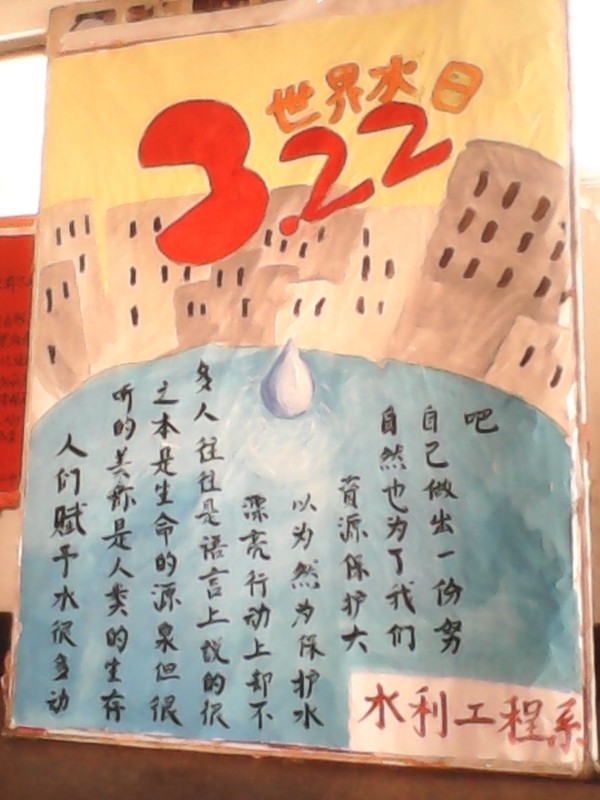 世界水日
3.22
人们赋予水很多动
听的美称是人类的生存
之本是生命的源泉但很
多人往往是语言上说的很
漂亮行动上却不
以为然为保护水
资源保护大
自然也为了我们
自己做出一份努
吧
水利工程系